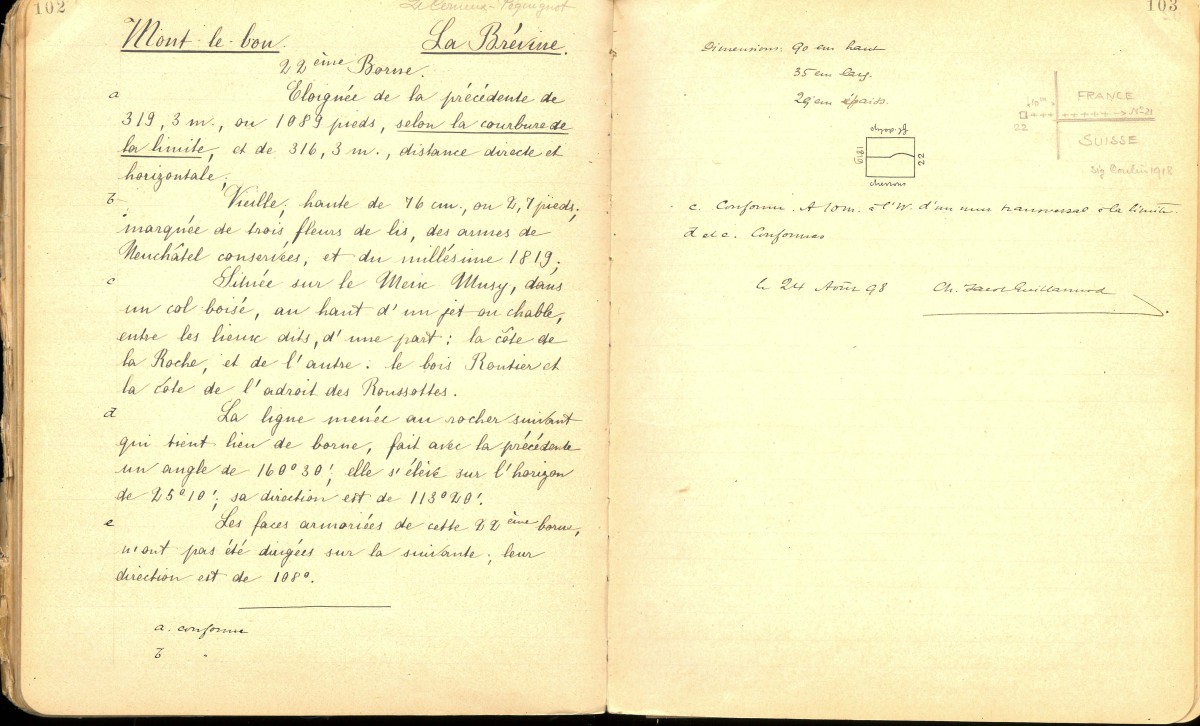 102
Le Cerneux-Péquignot
Mont-le-bon. La Brévine.
22ème Borne.
a Eloignée de la précédente de
319,3 m., ou 1089 pieds, selon la courbure de
la limite, et de 316,3 m., distance directe et
horizontale;
b Vieille, haute de 76 cm., ou 2,7 pieds;
marquée de trois fleurs de lis, des armes de
Neuchâtel conservées, et du millésime 1819;
c Située sur le Meix Musy, dans
un col boisé, au haut d'un jet ou chable,
entre les lieux dits, d'une part: la côte de
la Roche, et de l'autre: le bois Routier et
la côte de l'adroit des Roussottes.
d La ligne menée au rocher suivant
qui tient lieu de borne, fait avec la précédente
un angle de 160°30'; elle s'élève sur l'horizon
de 25°10'; sa direction est de 113°20'.
e Les faces armoriées de cette 22ème borne,
n'ont pas été dirigées sur la suivante; leur
direction est de 108°.
a. conforme
b "
103
Dimensions: 90 cm haut
35 cm larg.
29 cm épaiss.
1819
22
chevrons
10m
22
FRANCE
N°21
SUISSE
1918
c. Conforme. A 10 m. à l'W. d'un mur transversal à la limite.
d et e. Conformes
le 24 Août 98 Ch. Jacot Guillarmod